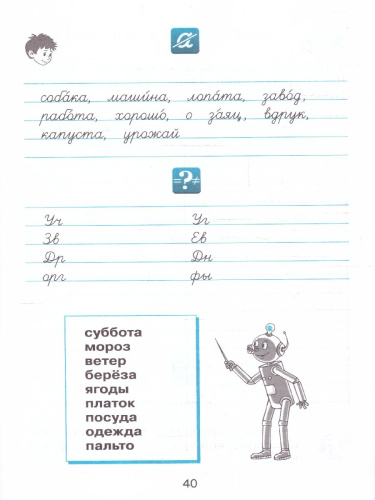 а
соба́ка, маши́на, лопа́та, заво́д,
рабо́та, хорошо́, о за́яц, вдруг,
капуста, урожай
=?≠
Уч Уг
Зв Ев
Др Дн
орг фы
суббота
мороз
ветер
берёза
ягоды
платок
посуда
одежда
пальто
40